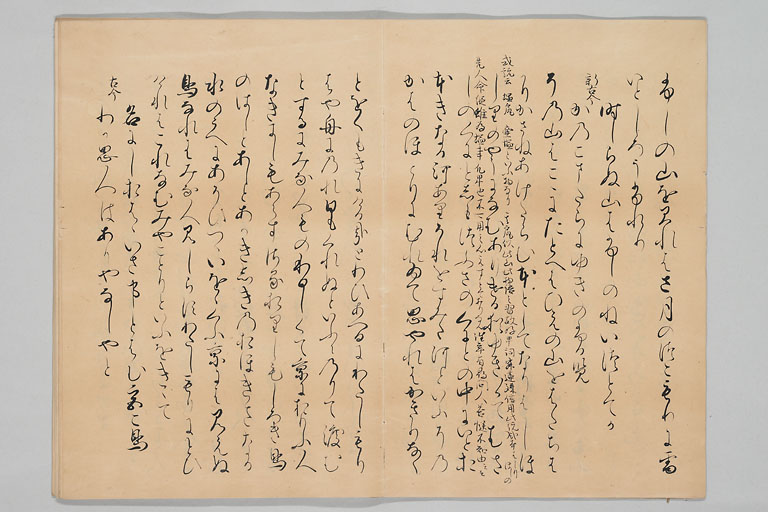 ふしの山を見れはさ月のつこもりに雪
いとしろうふれり
時しらぬ山はふしのねいつとてか
新古今
かのこまたらにゆきのふる覧
その山はこゝにたとへはひえの山をはたち
はかりかさねあけたらむほとしてなりはしほ
或説云 塩尻
しりのやうになむありける 猶ゆき/\て むさ
先人命
しのくにとしもつふさのくにとの中にいとお
ほきなる河ありそれをすみた河といふその
かはのほとりにむれゐて思やれはかきりなく
とをくもきにけるかなとわひあへるにわたしもり
はや舟にのれ日もくれぬといふにのりて渡らむ
とするにみな人ものわひしくて京におもふ人
なきにしもあらすさるおりしもしろき鳥
のはしとあしとあかきしきのおほきさなる
水のうへにあそひつゝいをゝくふ京には見えぬ
鳥なれはみな人見しらすわたしもりにとひ
けれはこれなむみやことりといふをきゝて
名にしおはゝいさ事とはむ宮こ鳥
古今
わか思人はありやなしやと